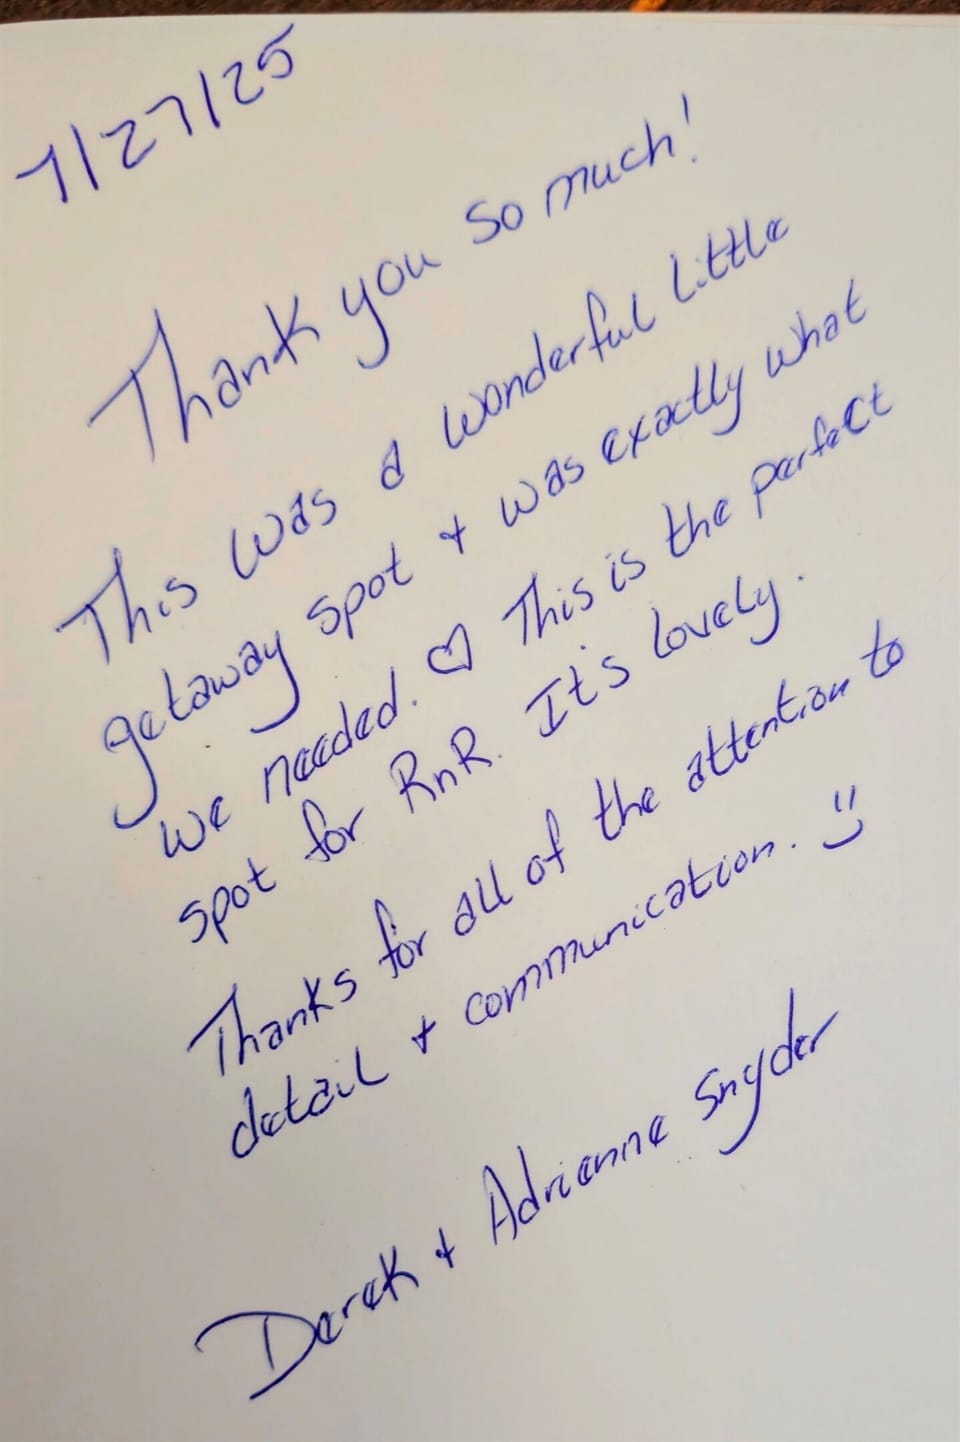 7/27/25
Thank you so much!
This was a wonderful little
getaway spot + was exactly what
we needed. ♡ This is the perfect
spot for RnR. It's lovely.
Thanks for all of the attention to
detail + communication. :)
Derek + Adrienne Snyder